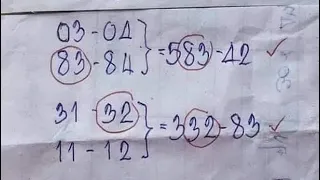 03-04
83-84 } = 583-42 ✓
31-32
11-12 } = 332-83 ✓